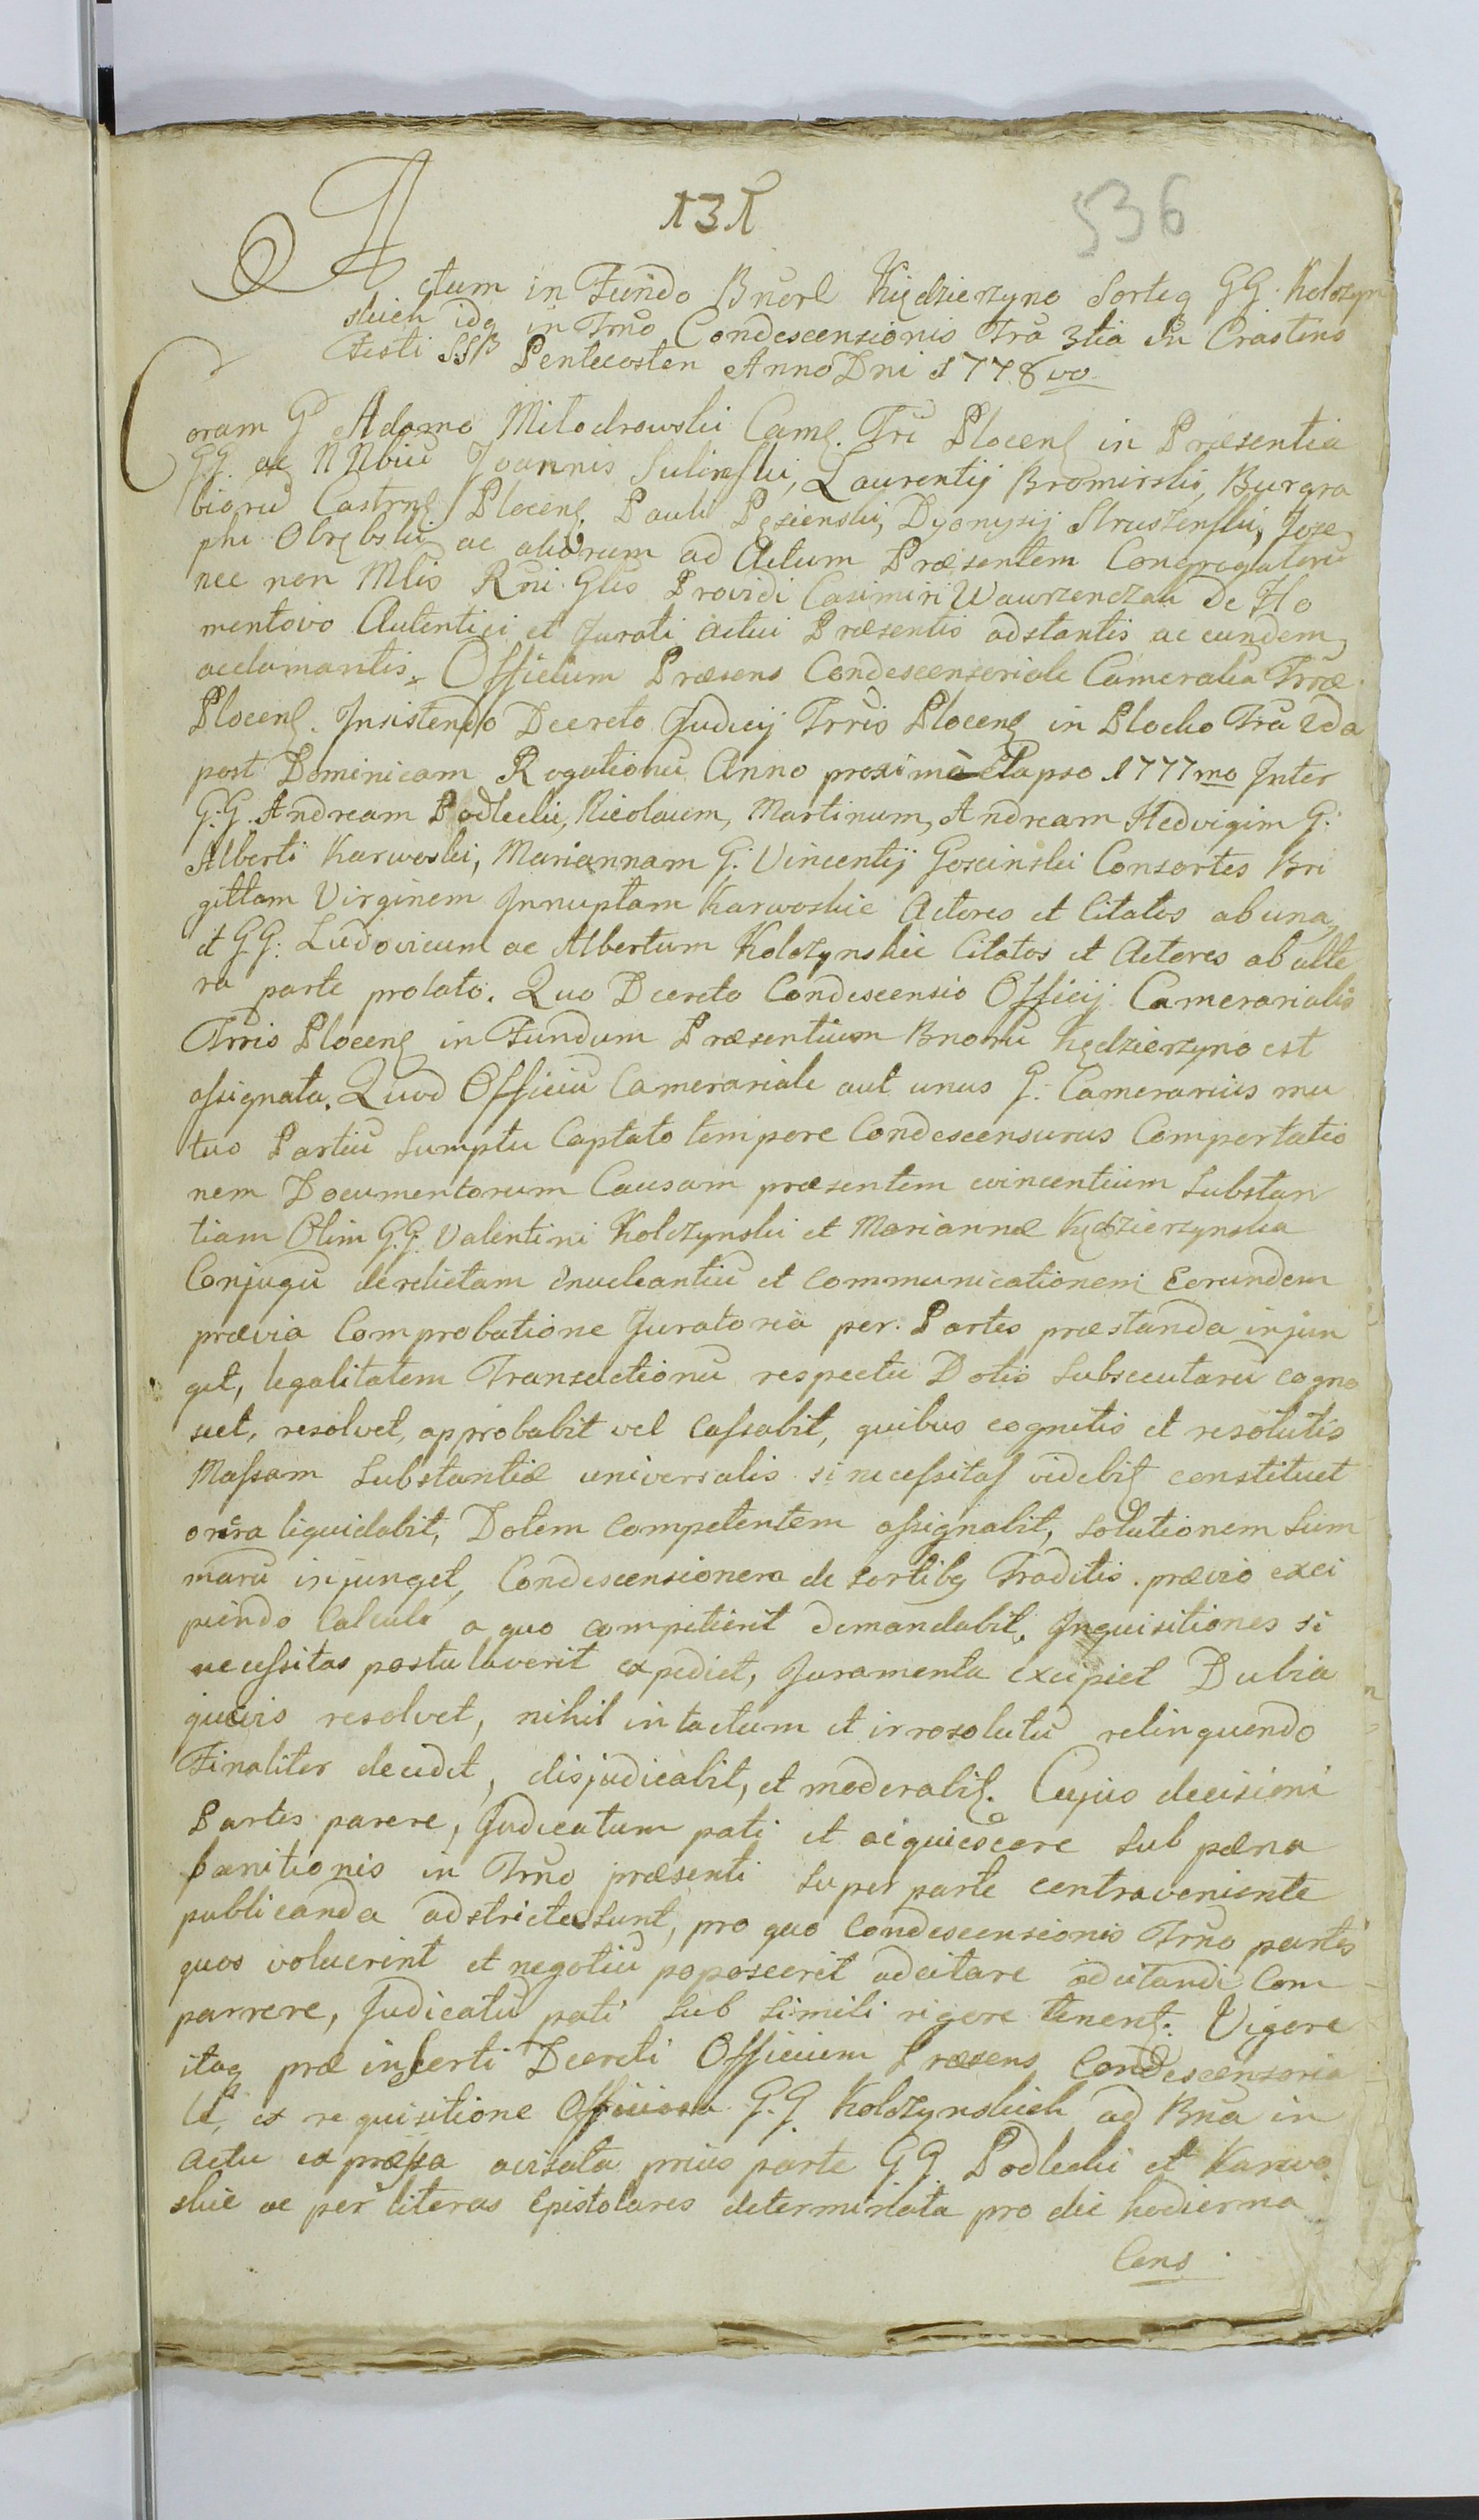 131
536
Actum in Fundo Bnorũ Kiędzierzyno Sorteq GG. Kolczyn
skich idq in Trno Condescensionis Fra 3tia in Crastino
Festi SSB Pentecosten Anno Dni 1778vo
Coram G Adamo Miłodrowski Camq. Tri Plocenq in Præsentia
GG. ac NNbiũ Joannis Sulinski, Laurentij Bromirski, Burgra
biorũ Castrnq Plocenq, Pauli Pęsienski, Dyonysij Struszenski, Jose
phi Obrębski ac aliorum ad Actum Præsentem Congregatorũ
nec non Mlis Rni Glis Providi Casimiri Wawrzenczak De Ho
mentowo Autentici et Jurati actui Præsentis adstantis ac eundem
acclamantis. Officium Præsens Condescensoriale Cameralia Trræ
Plocenq. Insistendo Decreto Judicij Trris Plocenq in Plocko Fra 2da
post Dominicam Rogationũ Anno proximè elapso 1777mo Inter
G.G. Andream Podlecki, Nicolaum, Martinum, Andream Hedvigim G.
Alberti Karwoski, Mariannam G. Vincentij Goscinski Consortes Bri
gittam Virginem Innuptam Karwoskie Actores et Citatos ab una
et GG. Ludovicum ac Albertum Kolczynskie Citatos et Actores ab alte
ra parte prolato. Quo Decreto Condescensio Officij Camerarialis
Trris Plocenq in Fundum Præsentium Bnorũ Kędzierzyno est
assignata. Quod Officiũ Camerariale aut unus G. Camerarius mu
tuo Partiũ Sumptu Captato tempore Condescensurus Comportatio
nem Documentorum Causam præsentem evincentium Substan
tiam Olim G.G. Valentini Kolczynski et Mariannæ Kędzierzynska
Conjugũ derelictam enucleantiũ et Communicationem Eorundem
prævia Comprobatione Juratoria per Partes præstanda injun
get, legalitatem Transactionũ respectu Dotis Subsecutarũ cogno
scet, resolvet, approbabit vel Cassabit, quibus cognitis et resolutis
Massam Substantiæ universalis si necessitas videbiq constituet
onera liquidabit, Dotem Competentem assignabit, Solutionem Sum
marũ injunget, Condescensionem de Sortibq Traditis prævio exci
piendo Calculo a quo Competierit demandabit, Inquisitiones si
necessitas postulaverit expediet, Juramenta excipiet Dubia
quævis resolvet, nihil intactum et irresolutũ relinquendo
Finaliter decidet, disjudicabit, et moderabiq. Cujus decisioni
Partes parere, Judicatum pati et acquiescere Sub pæna
banitionis in Trno præsenti Super parte contraveniente
publicanda adstrictæ Sunt, pro quo Condescensionis Trno partes
quos voluerint et negotiũ poposcerit adcitare adcitandi Com
parrere, Judicatũ pati Sub Simili rigore tenenq. Vigore
itaq præ inserti Decreti Officium Præsens Condescensoria
le, ex requisitione Officiosa G.G. Kolczynskich ad Bna in
actu expræssa avisata prius parte G.G. Podlecki et Karwo
skie ac per literas Epistolares determinata pro die hodierna
Cons.